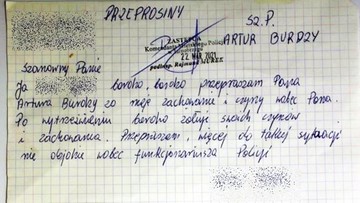 PRZEPROSINY
SZ. P.
ARTUR BURDZY
ZASTĘPCA
Komendanta Miejskiego Policji
22. MAR. 2021
podinsp. Rajmund MUREK
Szanowny Panie
Ja bardzo, bardzo przepraszam Pana
Artura Burdzy za moje zachowanie i czyny wobec Pana.
Po wytrzeźwieniu bardzo żałuję swoich czynów
i zachowania. Przepraszam, więcej do takiej sytuacji
nie dojdzie wobec funkcjonariusza Policji